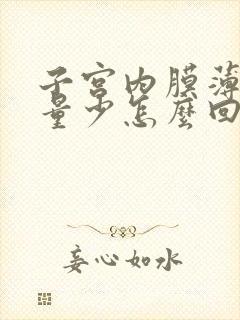 子宫内膜薄
量少怎麼回
妄心如水